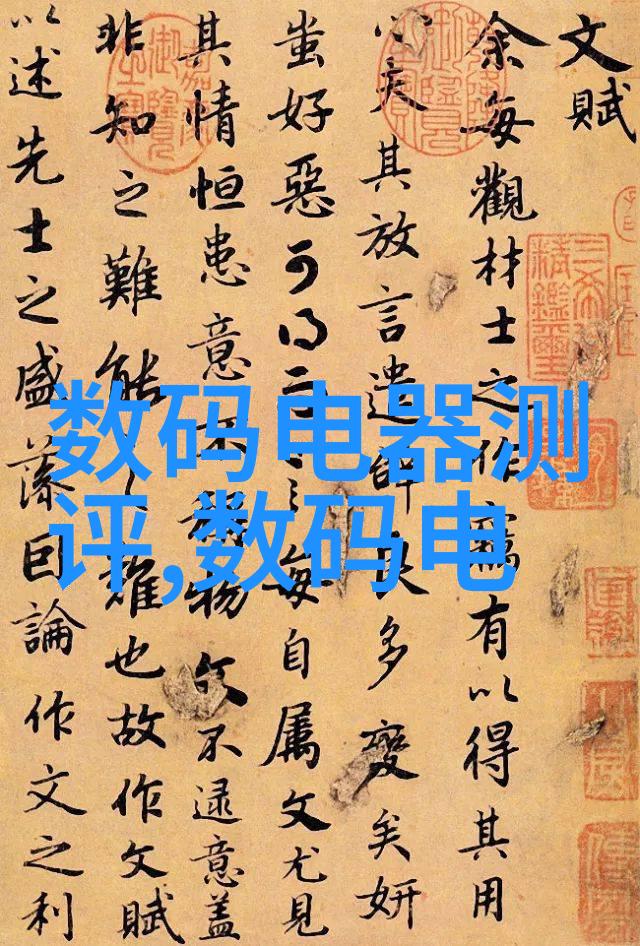 文賦
余每觀材士之作竊有以得其用
心夫其放言遣辭良多變矣妍
蚩好惡可得而言每自属文尤見
其情恒患意不稱物文不逮意盖
非知之難能之難也故作文賦
以述先士之盛藻因論作文之利
数码电器测
评,数码电
三希堂
精鑑璽